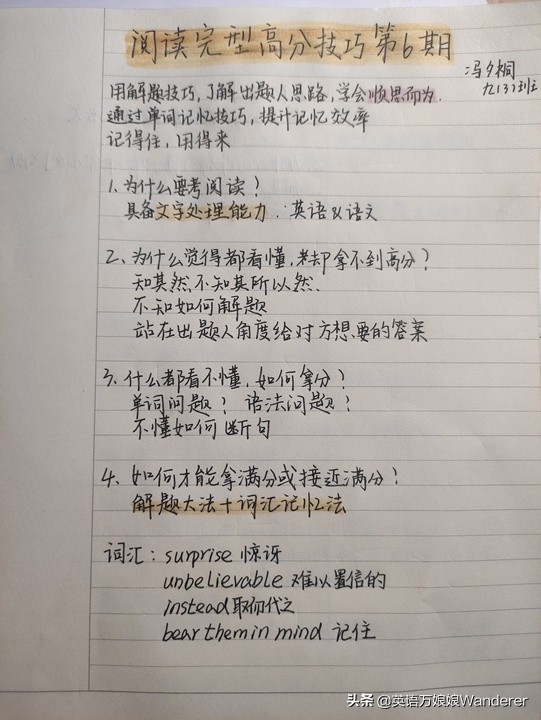 阅读完型高分技巧第6期
冯夕桐
九(3)班
用解题技巧,了解出题人思路,学会顺思而为.
通过单词记忆技巧,提升记忆效率
记得住,用得来
1.为什么要考阅读?
具备文字处理能力:英语&语文
2、为什么觉得都看懂,却拿不到高分?
知其然,不知其所以然.
不知如何解题
站在出题人角度给对方想要的答案
3.什么都看不懂,如何拿分?
单词问题? 语法问题?
不懂如何断句
4、如何才能拿满分或接近满分?
解题大法+词汇记忆法
词汇:surprise 惊讶
unbelievable 难以置信的
instead 取而代之
bear them in mind 记住
头条 @英语万娘娘Wanderer